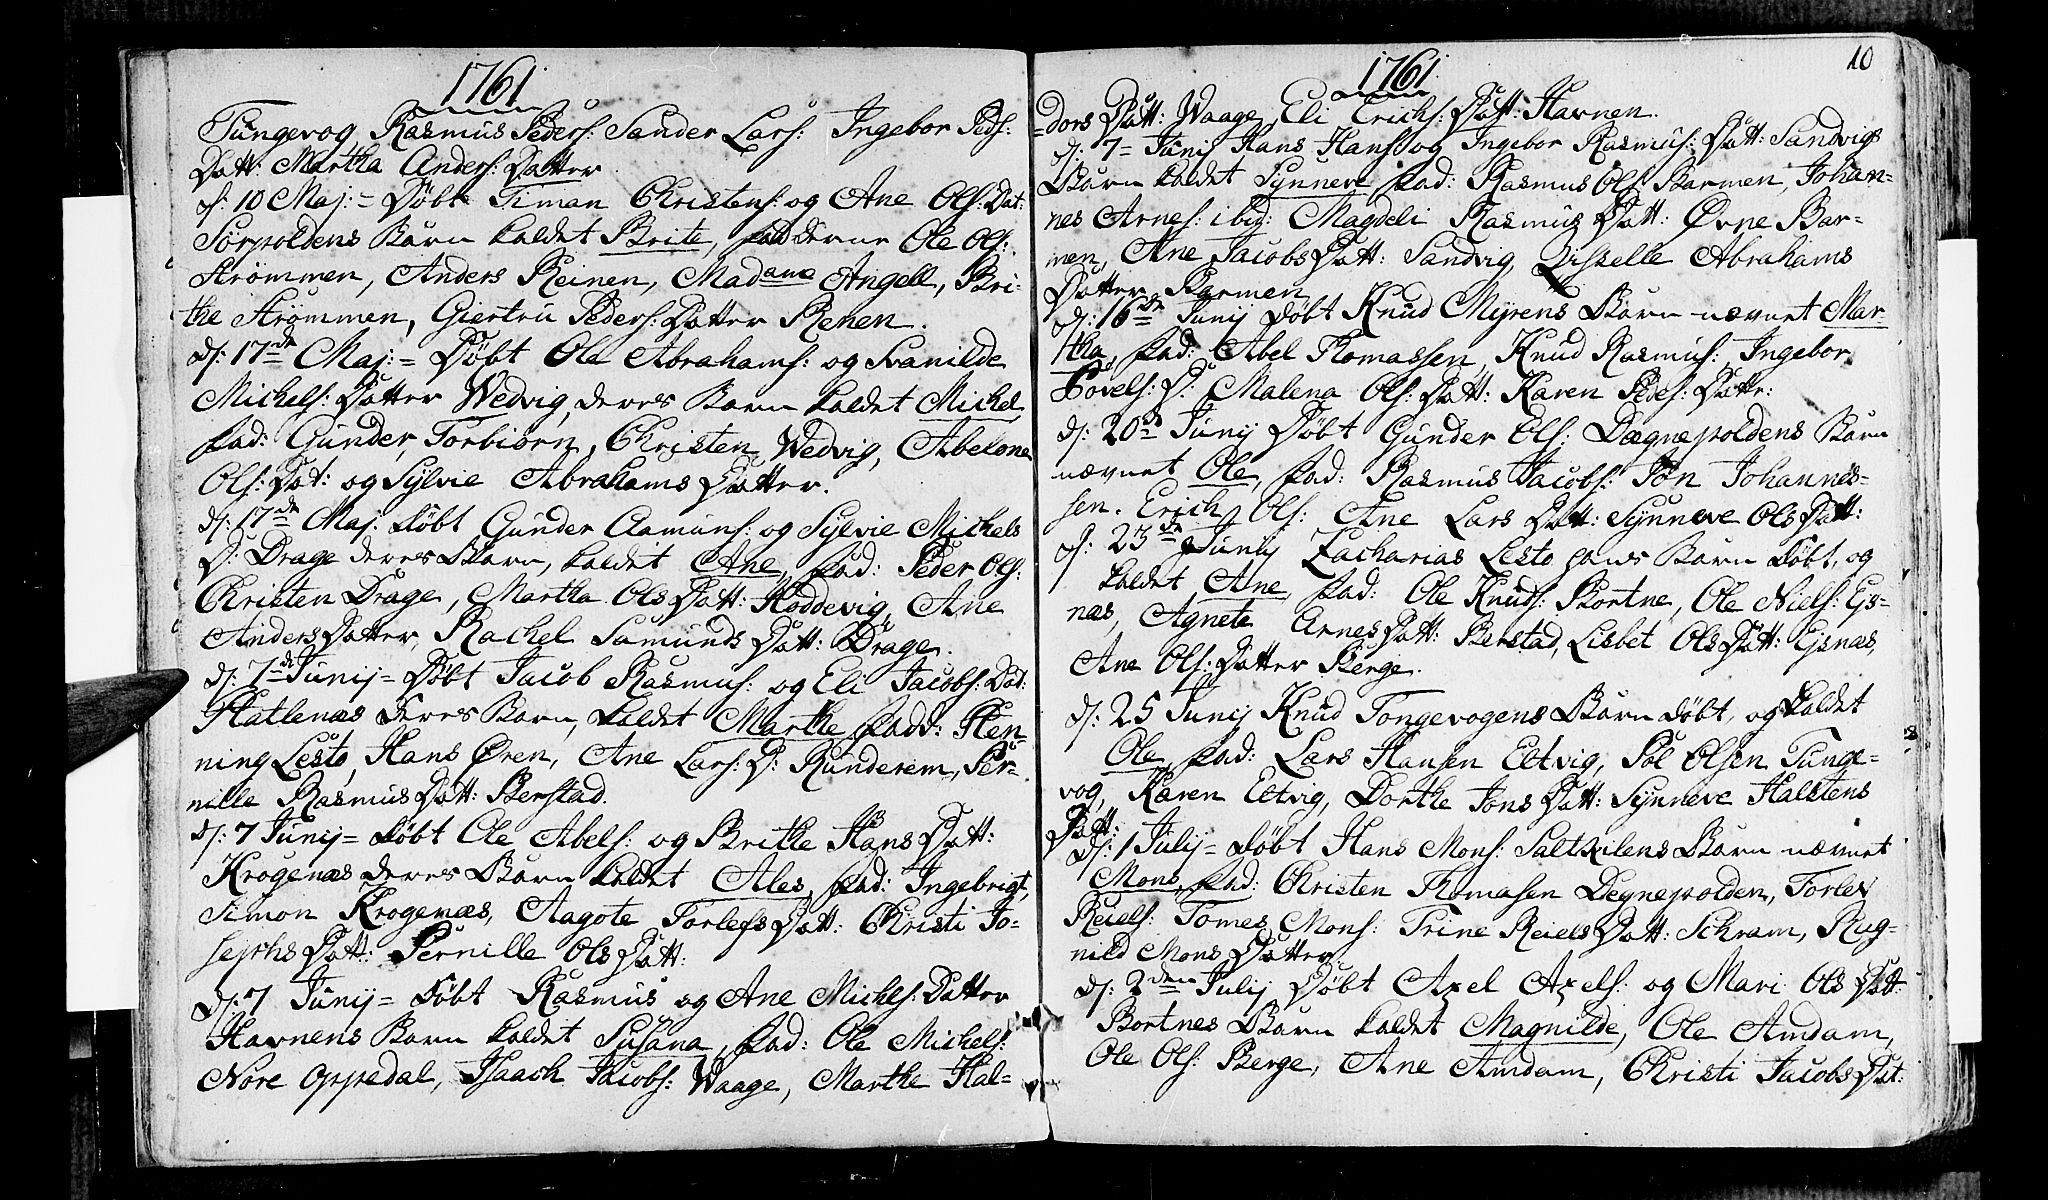 1761
Tungevog Rasmus Peders: Sander Lars: Ingebor Peds:
Datt: Martha Anders: Datter
d: 10 Maj:= Døbt Timan Christens: og Ane Ols: Dat:
Sørpoldens Barn kaldet Brite, fadderne Ole Ols:
Strømmen, Anders Reinen, Madame Angell, Bri-
the Strømmen, Giertru Peders: Datter Renen.
d: 17de Maj:= Døbt Ole Abrahams: og Svanilde
Michels: Datter Wedvig, deres Barn kaldet Michel
fad: Gunder, Torbiørn, Christen Wedvig, Abelone
Ols: Dat: og Sylvie Abrahams Datter.
d: 17de Maj: døbt Gunder Aamuns: og Sylvie Michels
D: Drage deres Barn, kaldet Ane, fad: Peder Ols:
Christen Drage, Martha Ols Datt: Hoddevig, Ane
Anders Datter, Rachel Samunds Datt: Drage.
d: 7de Junij= Døbt Jacob Rasmus: og Eli Jacobs: Dat:
Hatlenæs deres Barn, kaldet Marthe fadd: Hen
ning Lesto, Hans Øren, Ane Lars: D: Runderem, Per-
nille Rasmus Datt: Berstad.
d: 7 Junij= døbt Ole Abels: og Brithe Hans Datt:
Krogenæs deres Barn kaldet Ales, fad: Ingebrigt,
Simon Krogenæs, Aagote Torlefs Datt: Christi Jo-
sephs Datt: Pernille Ols Datt:
d: 7 Junij= døbt Rasmus og Ane Michels: Datter
Havnens Barn kaldet Susana, fad: Ole Michels:
Nore Oppedal, Isaach Jacobs: Waage, Marthe Hal-
1761
10
=dors Datt: Waage, Eli Erichs: Datt: Havnen.
d: 7= Junij Hans Hans: og Ingebor Rasmus: Datt: Sandvigs
Barn kaldet Synneve fad: Rasmus Ols: Barmen, Johan-
nes Arnes: ibid: Magdeli Rasmus Datt: Øvne Bar-
men, Ane Jacobs Datt: Sandvig, Zisselle Abrahams
Datter Barmen
d: 16de Junij døbt Knud Myrens Barn nævnet Mar-
tha, fad: Abel Thomassen, Knud Rasmus: Ingebor
Povels: D: Malena Ols: Datt: Karen Peders: Datter:
d: 20de Junij Døbt Gunder Ols: Dægnepoldens Barn
nævnet Ole, fad: Rasmus Jacobs: Jon Johannes-
sen. Erich Ols: Ane Lars Datt: Synneve Ols Datt:
d: 23de Junij Zacharias Lesto hans Barn døbt, og
kaldet Ane, fad: Ole Knuds: Bortne, Ole Niels: Ejs-
næs, Agnete Arnes Datt: Berstad, Lisbet Ols Datt: Ejsnæs,
Ane Ols: Datter Berge.
d: 25 Junij Knud Tongevogens Barn døbt, og kaldet
Ole, fad: Lars Hansen Eltvig, Pol Olsen Tunge-
vog, Karen Eltvig, Dorthe Jons Datt: Synneve Halstens
Datt:
d: 1 Julij= døbt Hans Mons: Saltkilens Barn nævnet
Mons, fad: Christen Thomasen Degnepolden, Torlev
Reiels: Tomes Mons: Trine Reiels Datt: Schram, Rug-
nild Mons Datter
d: 2den Julij Døbt Axel Axels: og Mari Ols Datt:
Bortnes Barn kaldet Magnilde, Ole Amdam,
Ole Ols: Berge, Ane Amdam, Christi Jacobs Dat: